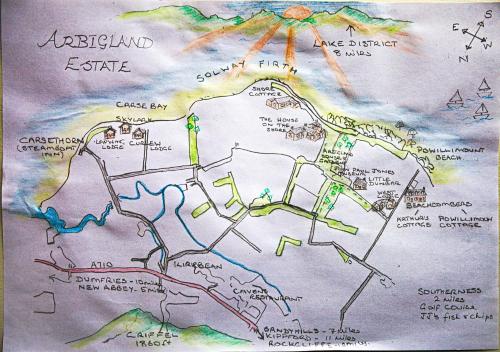 ARBIGLAND
ESTATE
LAKE DISTRICT
8 MILES
E
S
W
N
SOLWAY FIRTH
CARSE BAY
SKYLARK
SHORE
COTTAGE
THE HOUSE
ON THE
SHORE
CARSETHORN
(STEAMBOAT
INN)
LODGE
CURLEW
LODGE
POWILLIMOUNT
BEACH
PAUL JONES
LITTLE
DUNBAR
WEST
LODGE
BEACHCOMBERS
ARTHUR'S
COTTAGE
POWILLIMOUNT
COTTAGE
A710
DUMFRIES -
NEW ABBEY -
KIRKBEAN
CAVENS
RESTAURANT
SOUTHERNESS
2 MILES
Golf Course
JJ's fish & chips
CRIFFEL
1860ft
SANDYHILLS - 7 MILES
KIPPFORD - 11 MILES
ROCKCLIFFE